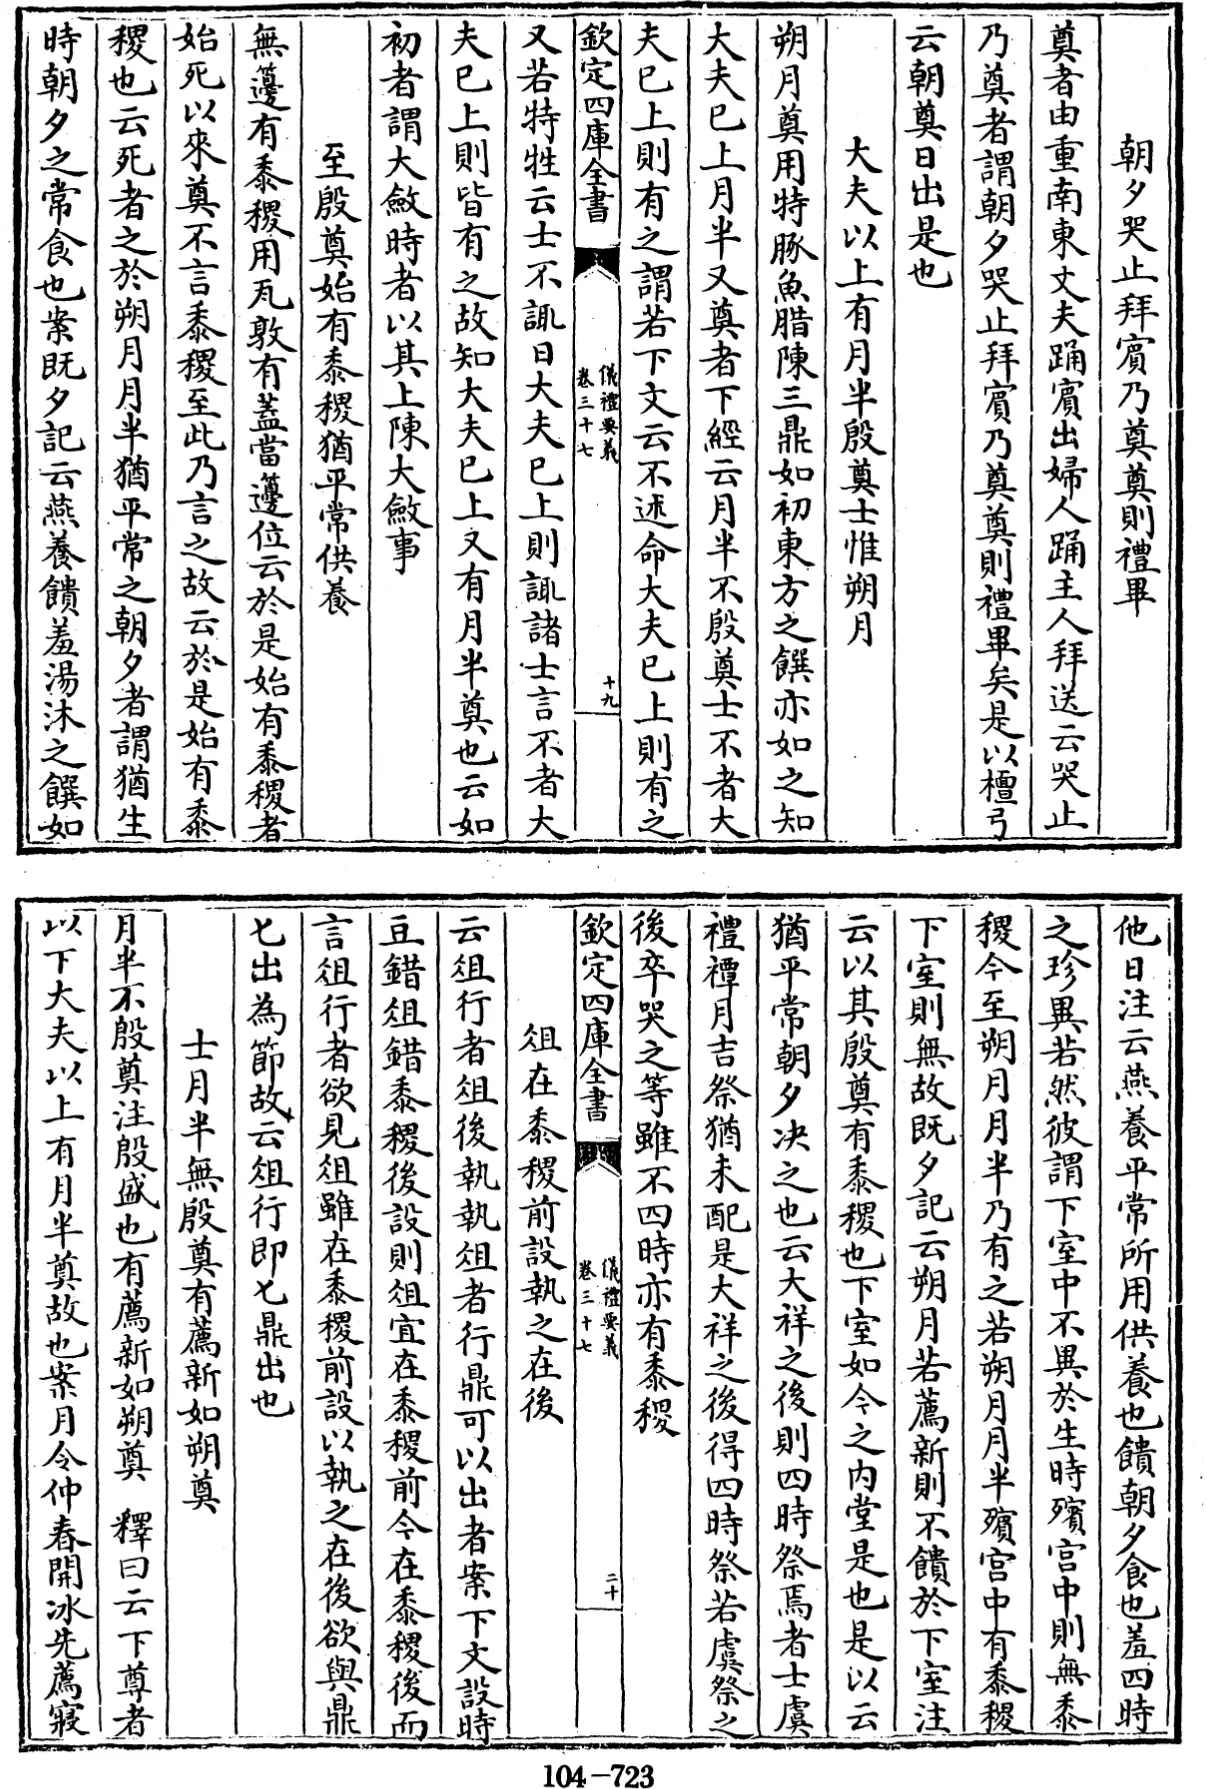 朝夕哭止拜賔乃奠奠則禮畢
奠者由重南東丈夫踊賔出婦人踊主人拜送云哭止
乃奠者謂朝夕哭止拜賔乃奠奠則禮畢矣是以檀弓
云朝奠日出是也
大夫以上有月半殷奠士惟朔月
朔月奠用特豚魚腊陳三鼎如初東方之饌亦如之知
大夫已上月半又奠者下經云月半不殷奠士不者大
夫已上則有之謂若下文云不述命大夫已上則有之
欽定四庫全書
儀禮要義
卷三十七
十九
又若特牲云士不諏日大夫已上則諏諸士言不者大
夫已上則皆有之故知大夫已上又有月半奠也云如
初者謂大斂時者以其上陳大斂事
至殷奠始有黍稷猶平常供養
無籩有黍稷用瓦敦有蓋當籩位云於是始有黍稷者
始死以來奠不言黍稷至此乃言之故云於是始有黍
稷也云死者之於朔月月半猶平常之朝夕者謂猶生
時朝夕之常食也案既夕記云燕養饋羞湯沐之饌如
他日注云燕養平常所用供養也饋朝夕食也羞四時
之珍異若然彼謂下室中不異於生時殯宫中則無黍
稷今至朔月月半乃有之若朔月月半殯宫中有黍稷
下室則無故既夕記云朔月若薦新則不饋於下室注
云以其殷奠有黍稷也下室如今之内堂是也是以云
猶平常朝夕决之也云大祥之後則四時祭焉者士虞
禮禫月吉祭猶未配是大祥之後得四時祭若虞祭之
後卒哭之等雖不四時亦有黍稷
欽定四庫全書
儀禮要義
卷三十七
二十
俎在黍稷前設執之在後
云俎行者俎後執執俎者行鼎可以出者案下文設時
豆錯俎錯黍稷後設則俎宜在黍稷前今在黍稷後而
言俎行者欲見俎雖在黍稷前設以執之在後欲與鼎
匕出為節故云俎行即匕鼎出也
士月半無殷奠有薦新如朔奠
月半不殷奠注殷盛也有薦新如朔奠 釋曰云下尊者
以下大夫以上有月半奠故也案月令仲春開冰先薦寢
104-723